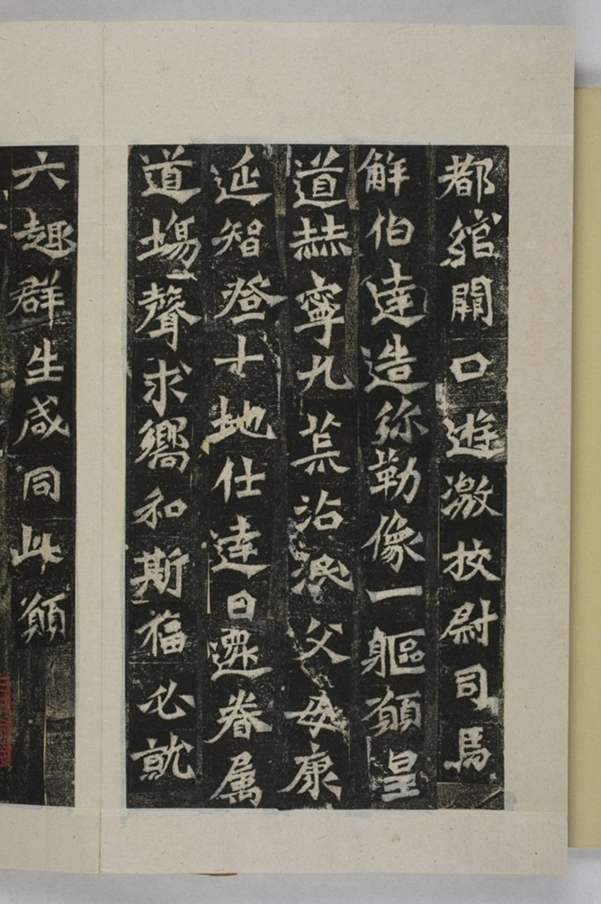 都綰關口遊激校尉司馬
解伯達造弥勒像一軀願皇
道赫寧九荒沾泯父母康
延智登十地仕達日遷眷属
道場聲求嚮和斯福必就
六趣群生咸同此願